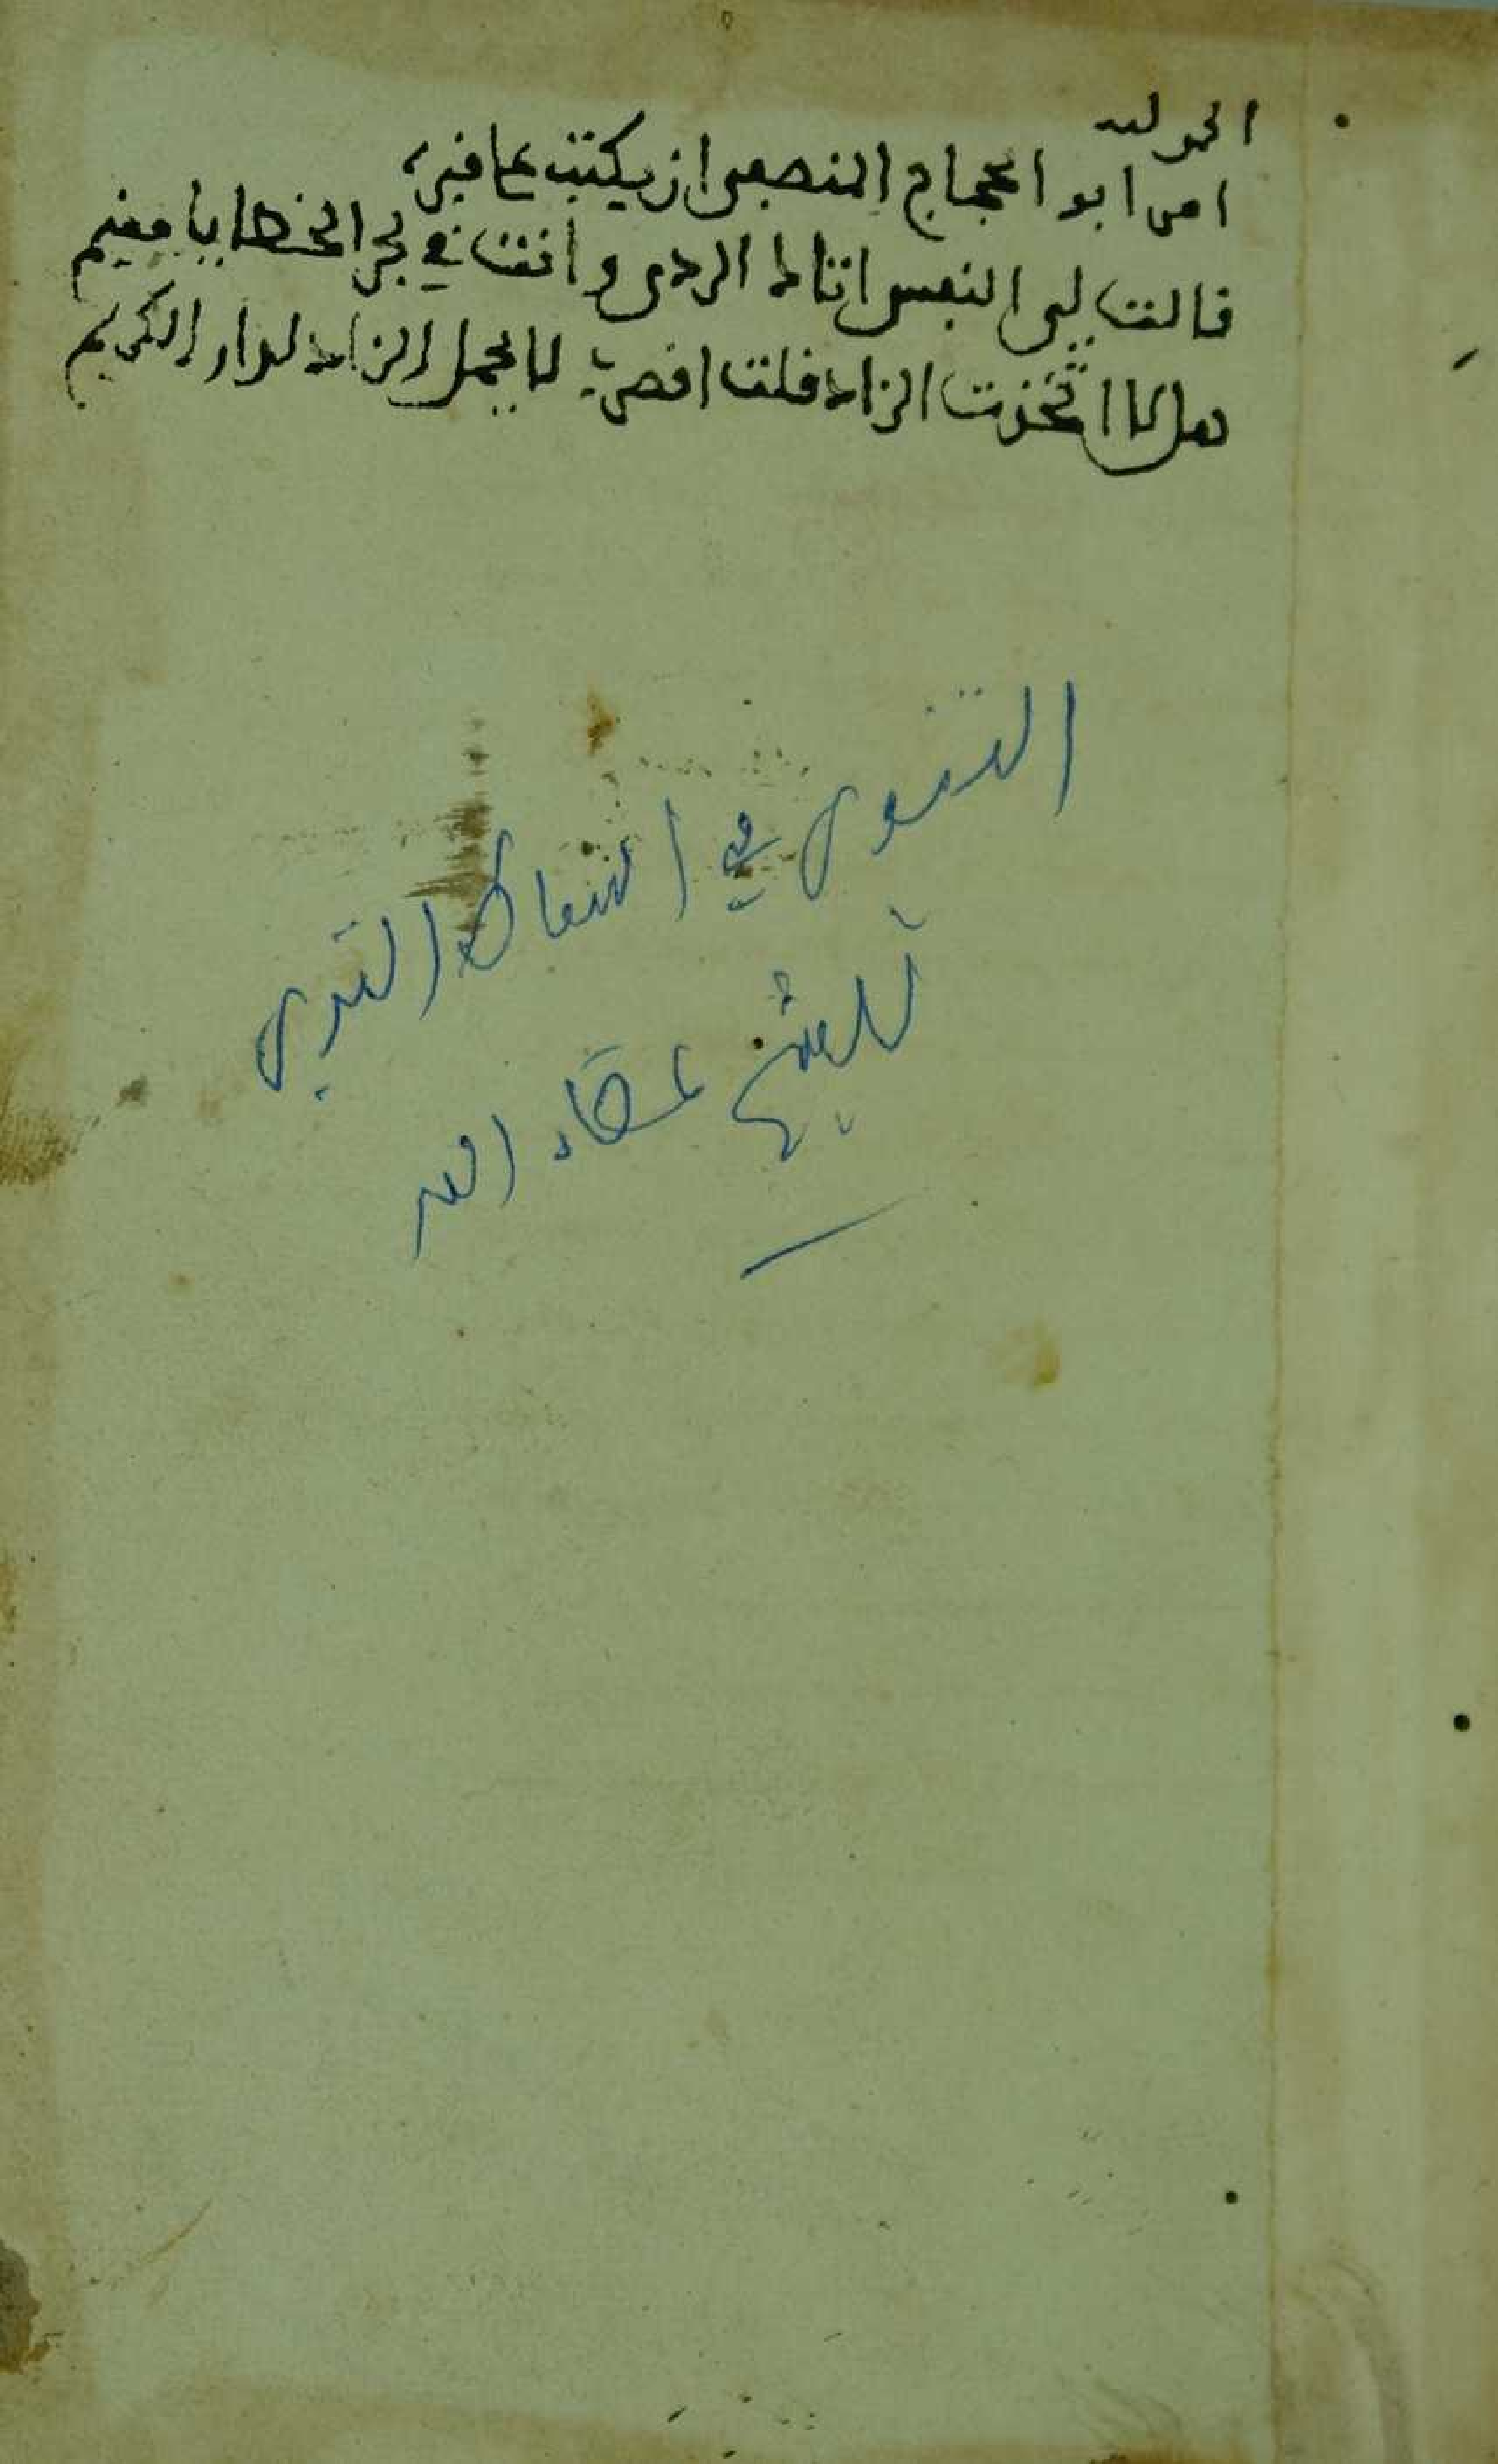 الحمد لله
امر ابو الحجاج المنصفي ان يكتب على قبره
قالت لي النفس اتاك الردى وانت في بحر الخطايا مقيم
هلا اتخذت الزاد قلت اقصري لا يحمل الزاد لدار الكريم
التنوير في اسقاط التدبير
للشيخ عطاء الله